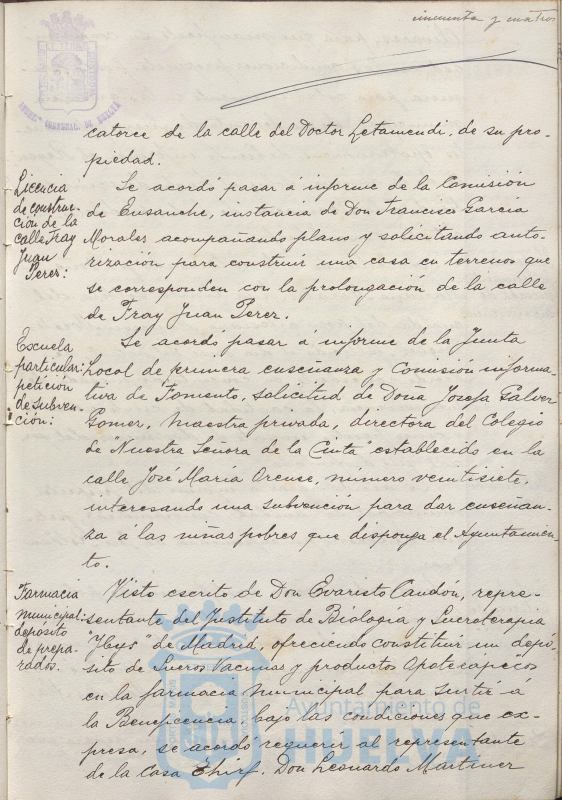 cincuenta y cuatro
catorce de la calle del Doctor Letamendi, de su pro-
piedad.
Licencia
de construc-
ción de la
calle Fray
Juan
Perez:
Se acordó pasar á informe de la Comisión
de Ensanche, instancia de Don Francisco García
Morales acompañando plano y solicitando auto-
rización para construir una casa en terrenos que
se corresponden con la prolongación de la calle
de Fray Juan Perez.
Escuela
particular:
petición
de subven-
ción:
Se acordó pasar á informe de la Junta
Local de primera enseñanza y Comisión informa-
tiva de Fomento, solicitud de Doña Josefa Galver
Gomez, maestra privada, directora del Colegio
de "Nuestra Señora de la Cinta" establecido en la
calle José María Orense, número veintisiete,
interesando una subvención para dar enseñan-
za á las niñas pobres que disponga el Ayuntamien-
to.
Farmacia
municipal:
depósito
de prepa-
rados.
Visto escrito de Don Evaristo Caudón, repre-
sentante del Instituto de Biología y Sueroterapia
"Ybys" de Madrid, ofreciendo constituir un depó-
sito de Sueros Vacunas y productos
en la farmacia municipal para surtir á
la Beneficencia, bajo las condiciones que ex-
presa, se acordó requerir al representante
de la Casa Don Leonardo Martinez
Ayuntamiento de
HUELVA